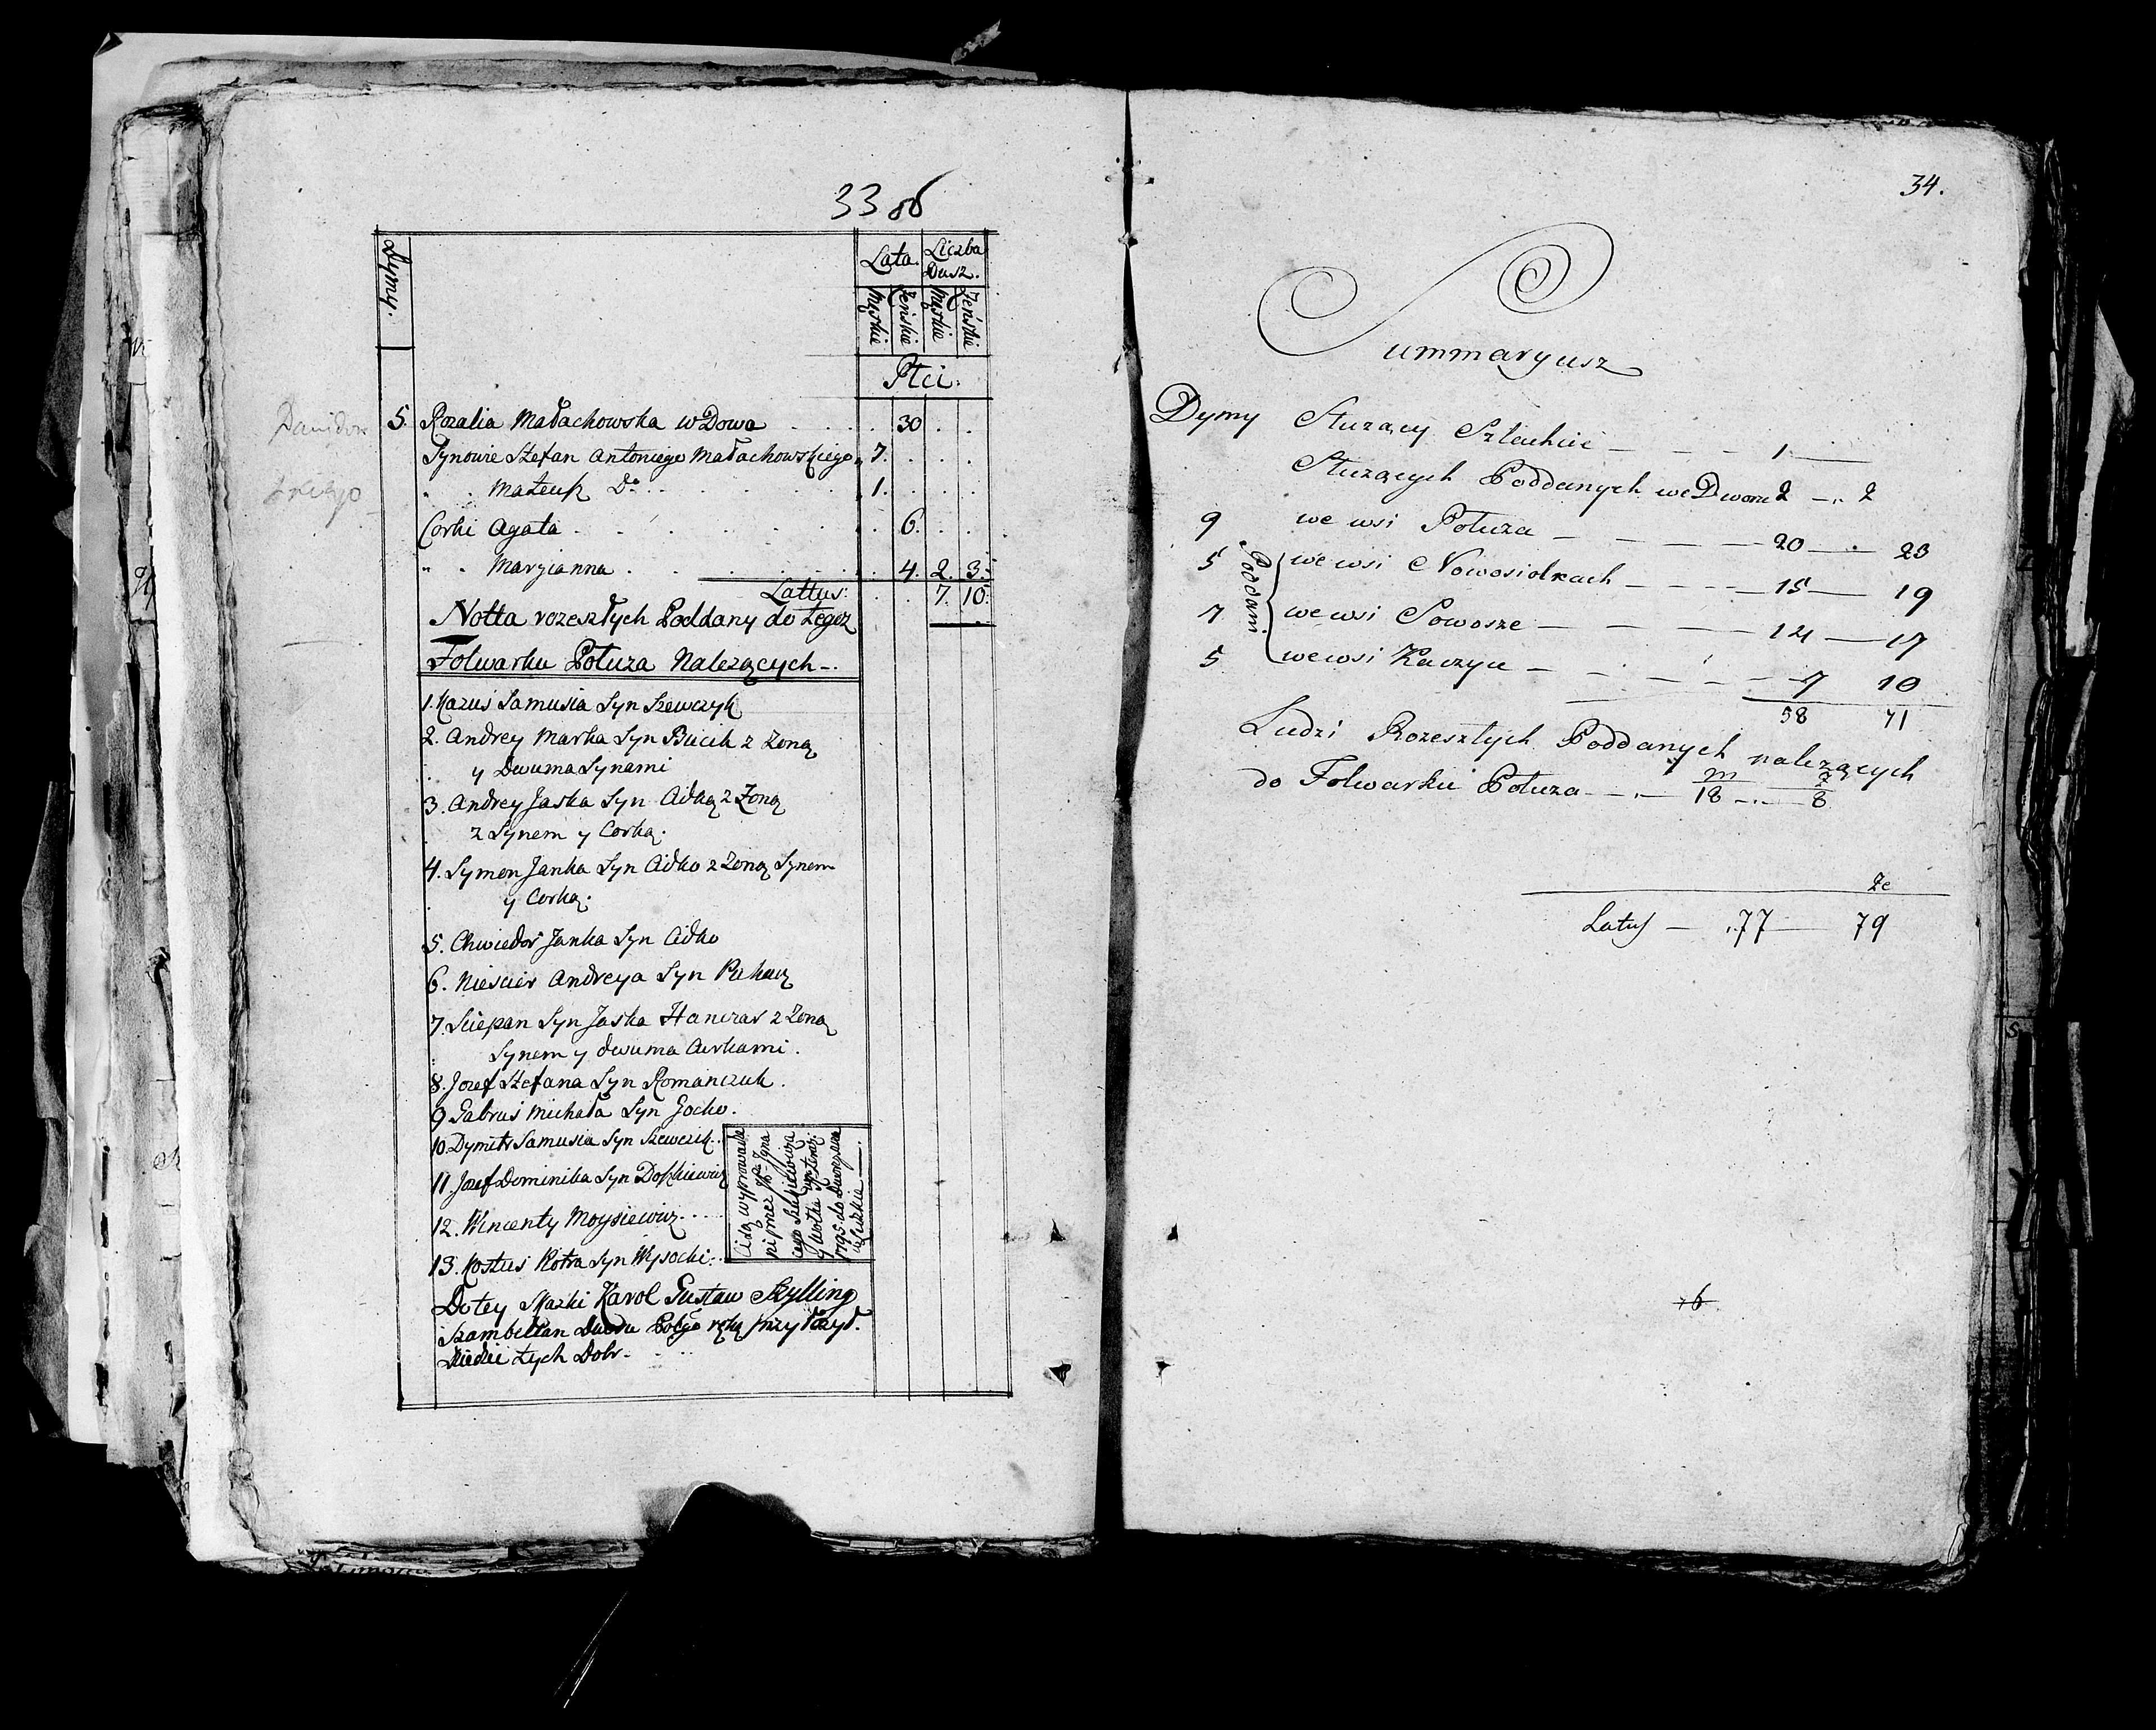 33 об
Dymy.
Lata.
Liczba Dusz.
Męskie
Żeńskie
Męskie
Żeńskie
Płci.
5. Rozalia Małachowska wDowa . . . . . 30 . .
Synowie Stefan Antoniego Małachowskiego „ 7. . . .
" . Mateusz Do . . . . . „ 1. . . .
Corki Agata . . . . . . . 6. . .
" . Maryianna . . . . . . 4. 2. 3.
Lattus: . . 7. 10.
Notta rozeszłych Poddany do tegoz
Folwarku Połuza Nalezących -.
1. Kazuś Samusia Syn Szewczyk
2. Andrey Marka Syn Bucik z Zoną
y Dwuma Synami
3. Andrey Jaska Syn Cidko z Zoną
z Synem y Corką.
4. Symon Janka Syn Cidko z Zoną Synem
y Corką.
5. Chwiedor Janka Syn Cidko
6. Nieścier Andreya Syn
7. Sciepan Syn Jaska Hanczar z Zoną
Synem y dwuma Curkami.
8. Jozef Stefana Syn Romanczuk.
9 Gabruś Michała Syn Jocko.
10. Dymitr Samusia Syn Szewczik..
11. Jozef Dominika Syn
12. Wincenty Moysiewicz . . .
13. Kostuś Piotra Syn Wysocki:.
Cidą wyprowadze
ni przez JP Igna
cego
z
1795. do
Do tey Skazki Karol Gustaw Szylling
Szambellan Dworu Polsgo ręką przyłozył.
Dziedzic tych Dobr.
34.
Summaryusz
Dymy Słuzący Szlachcic — - - - 1 —
Słuzących Poddanych we Dworze 2 — „ 2
9 we wsi Połuza — — — — 20 — . 23
Poddani
5 we wsi Nowosiołkach — - - - 15 — 19
7 we wsi Sowosze — — — — 14 — 17
5 we wsi Kaczyce — - - - 7 10
58 71
Ludzi Rozeszłych Poddanych nalezących
m Z
do Folwarku Połuza - - . — 18 - . . — 8
Ze
Latus — .77 — 79